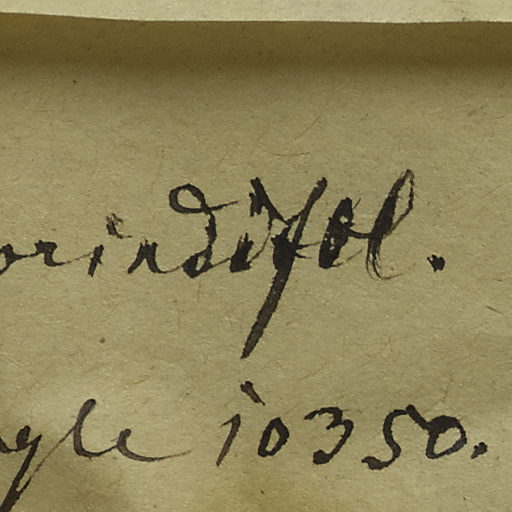 orindifol.
gle 10350.